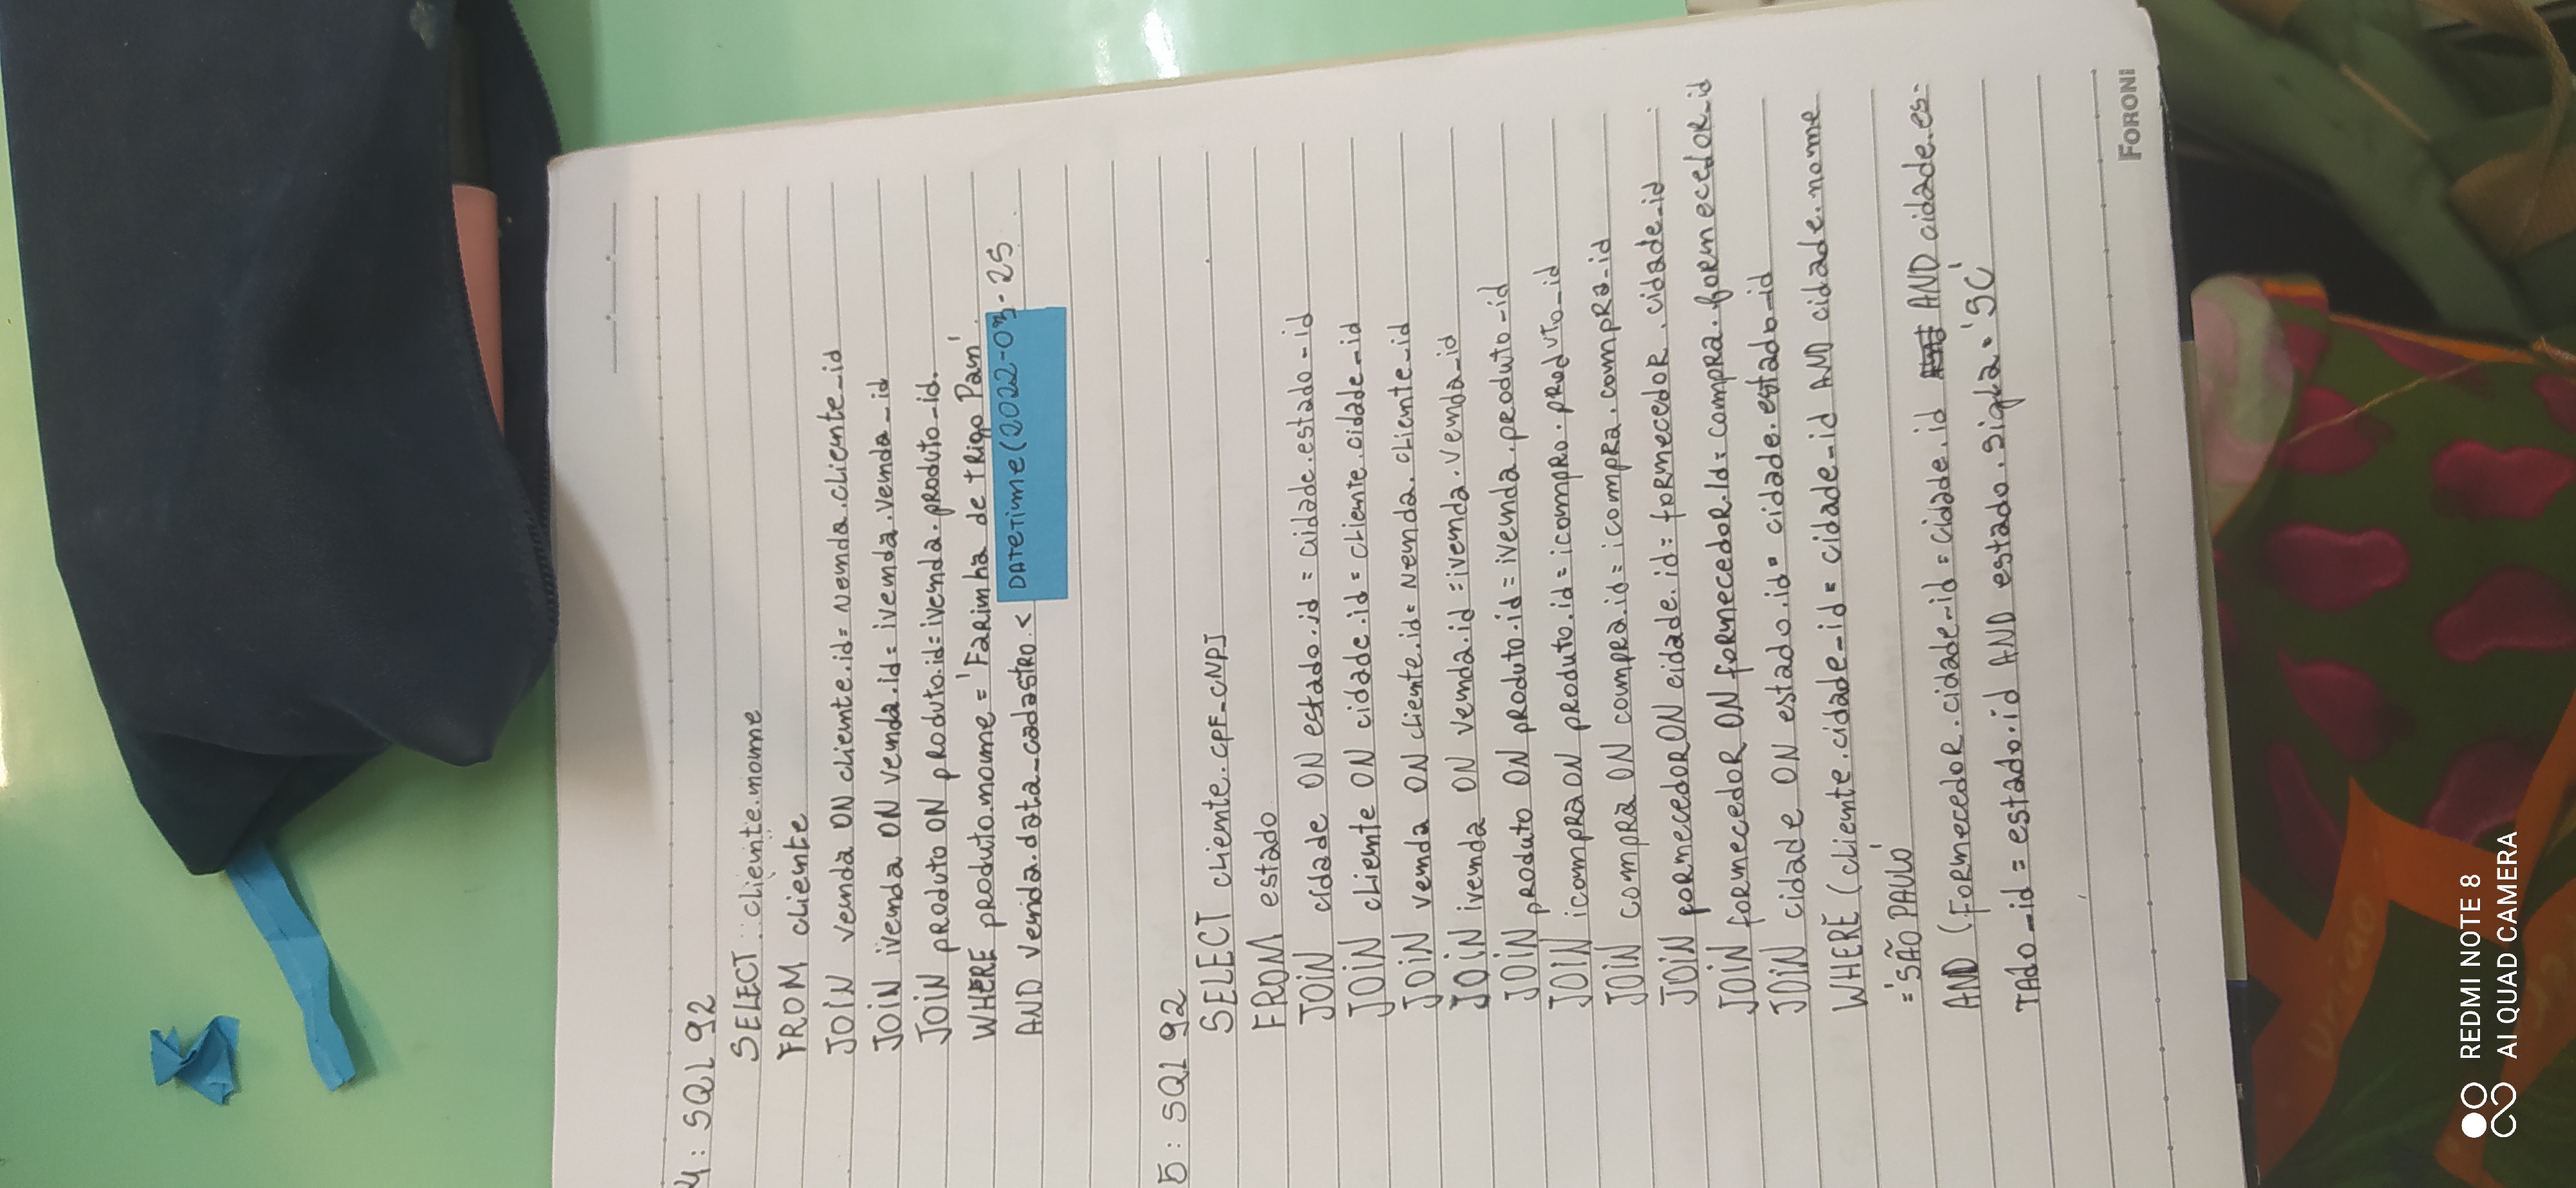 4: SQL 92
SELECT cliente.nome
FROM cliente
JOIN venda ON cliente.id= venda.cliente_id
JOIN ivenda ON venda.id= ivenda.venda_id
JOIN produto ON produto.id= ivenda.produto_id.
WHERE produto.nome = 'Farinha de trigo Pan'.
AND venda.data_cadastro < DATETime(2022-03-25
5: SQL 92
SELECT cliente.CPF_CNPJ
FROM estado
JOIN cidade ON estado.id = cidade.estado_id
JOIN cliente ON cidade.id = cliente.cidade_id
JOIN venda ON cliente.id= venda.cliente_id
JOIN ivenda ON venda.id =ivenda.venda_id
JOIN produto ON produto.id = ivenda.produto_id
JOIN icompra ON produto.id = icompro.produto_id
JOIN compra ON compra.id= icompra.compra_id
JOIN fornecedor ON cidade.id= fornecedor.cidade_id
JOIN fornecedor ON fornecedor.id= compra.fornecedor_id
JOIN cidade ON estado.id= cidade.estado_id
WHERE (cliente.cidade_id = cidade_id AND cidade.nome
='SÃO PAULO'
AND (Fornecedor.cidade_id = cidade.id AND cidade.es-
TAdo_id = estado.id AND estado.sigla = 'SC'
FORONI
REDMI NOTE 8
AI QUAD CAMERA